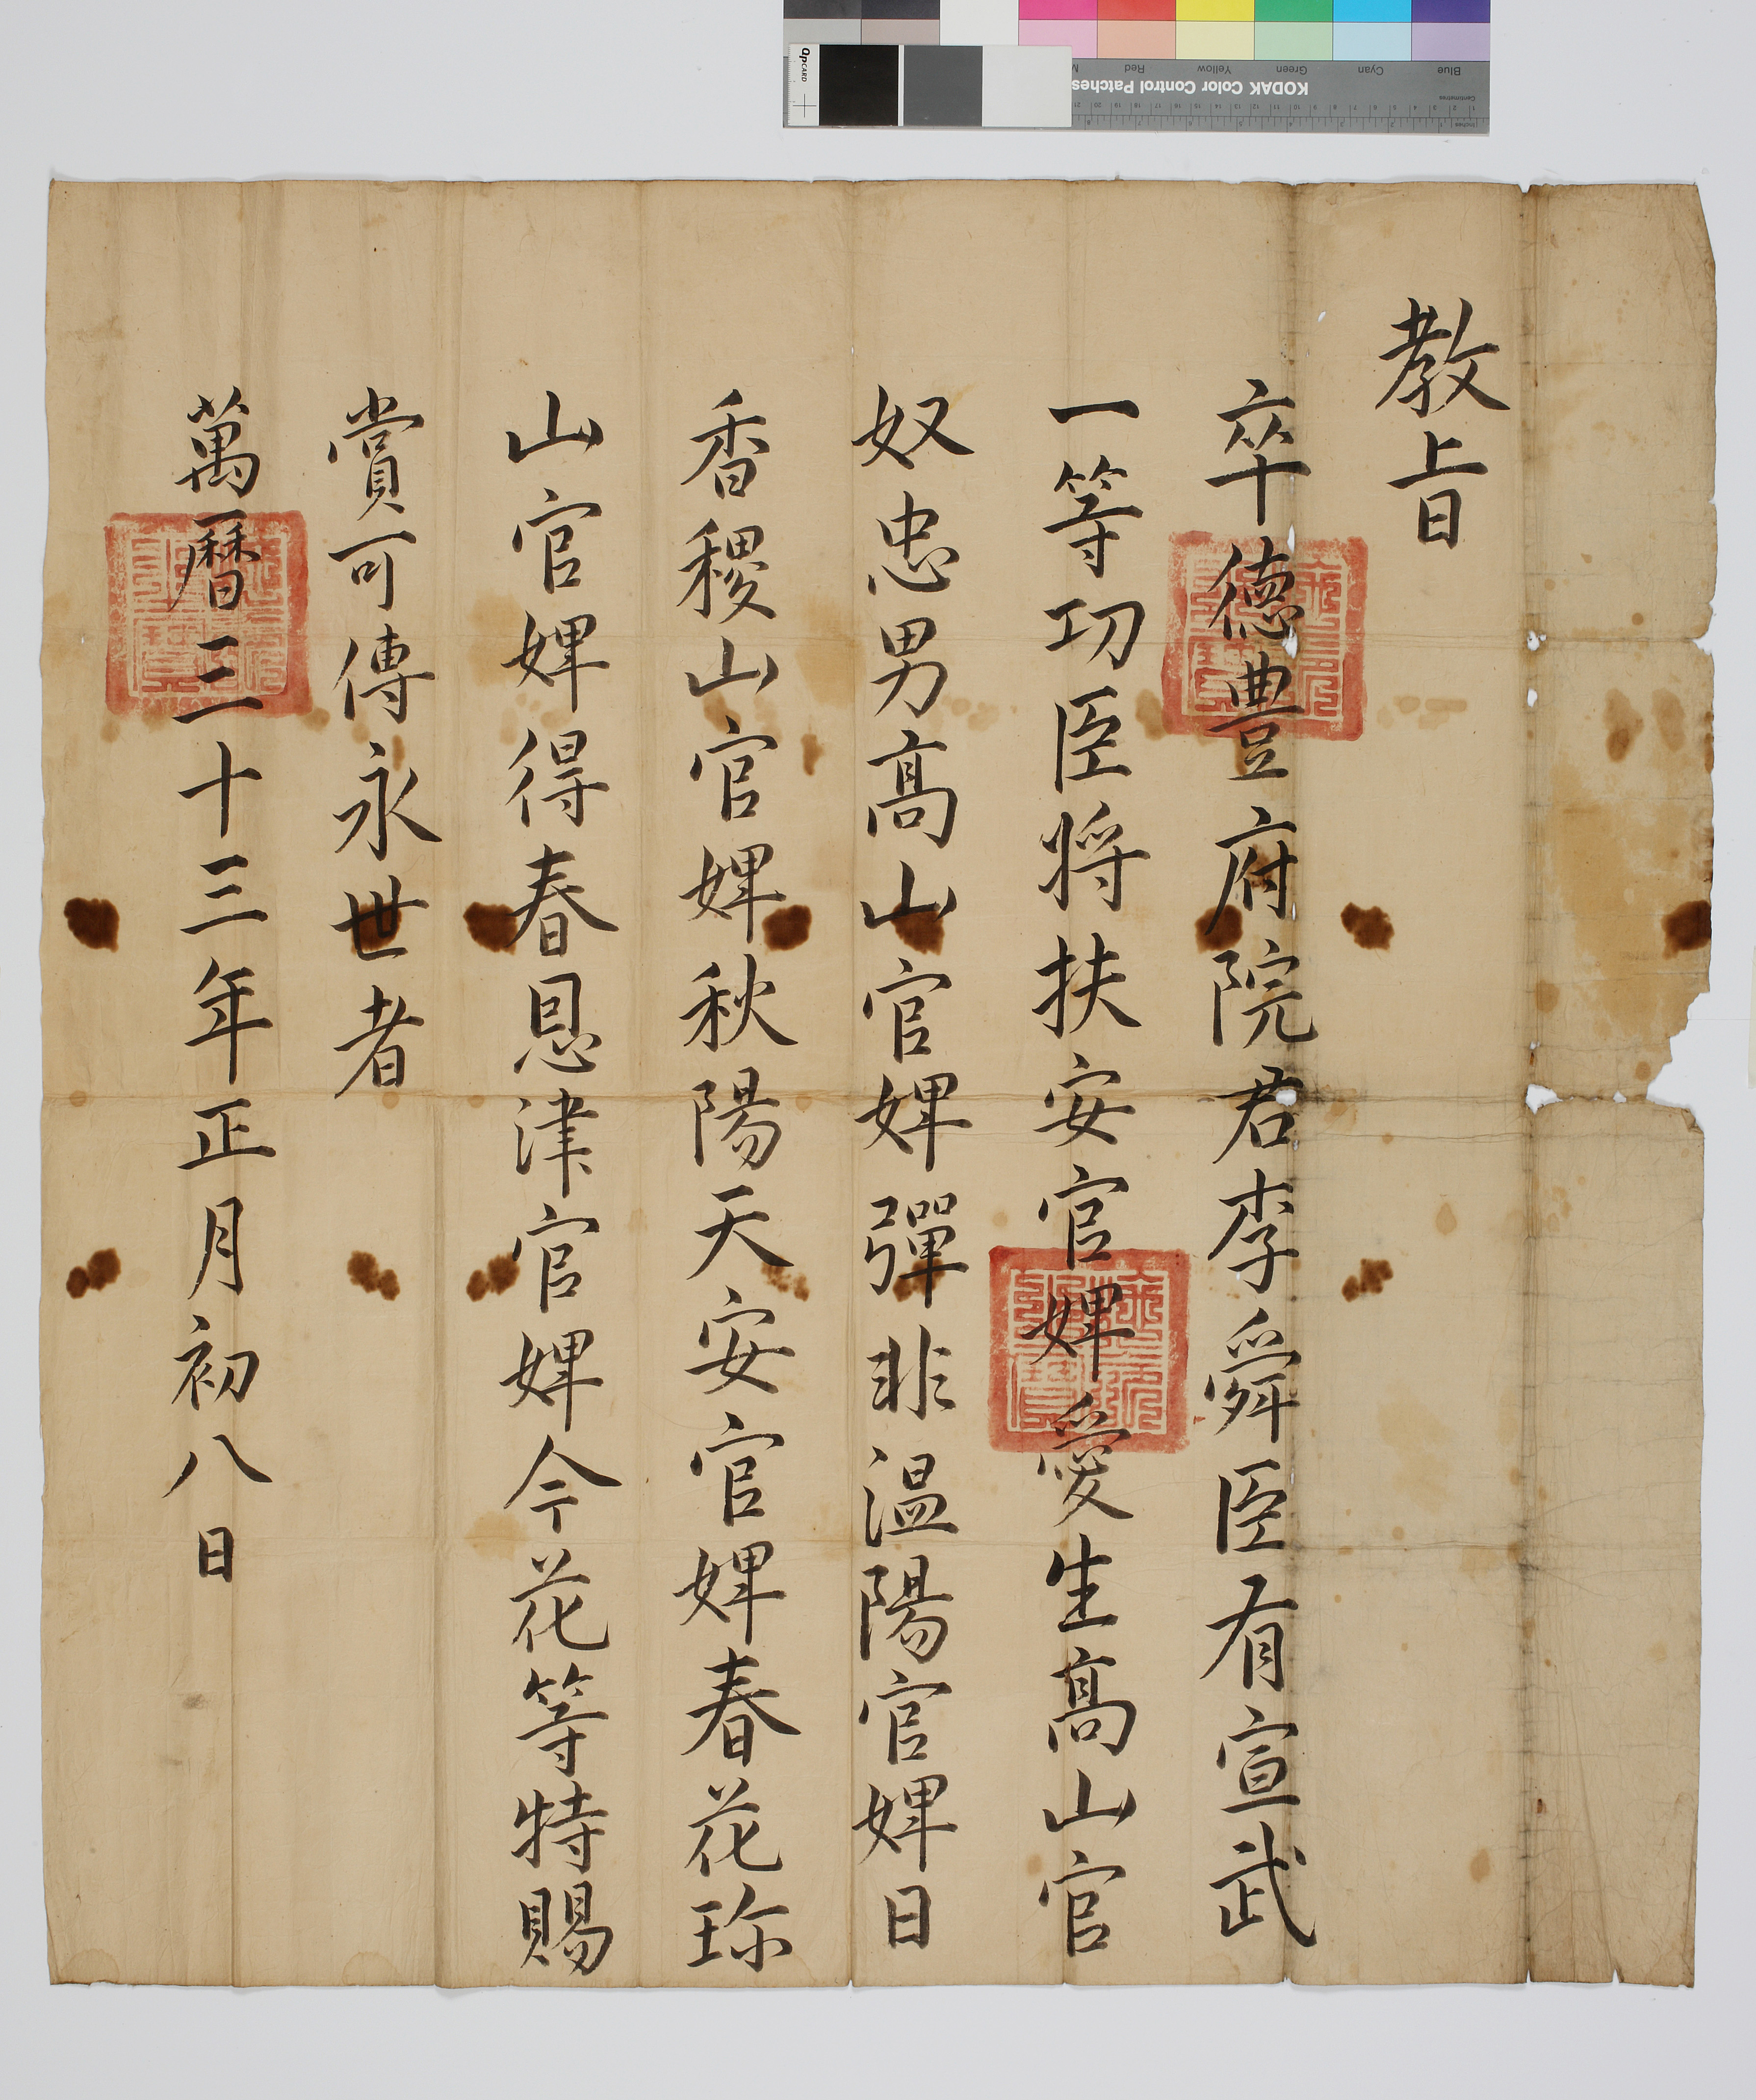 教旨
卒德豊府院君李舜臣有宣武
一等功臣將扶安官婢愛生高山官
奴忠男高山官婢彈非溫陽官婢日
香稷山官婢秋陽天安官婢春花珎
山官婢得春恩津官婢今花等特賜
賞可傳永世者
萬曆三十三年正月初八日
QPCARD
KODAK Color Control Patches
Blue Cyan Green Yellow Red M
Centimetres
Inches